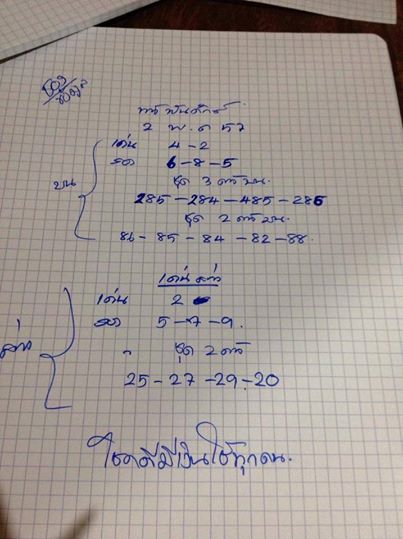 2 พ.ค 57
เด่น 4-2
รอง 6-8-5
บน
ชุด 3 ตัวบน
285-284-485-286
ชุด 2 ตัวบน
86-85-84-82-88.
เด่นล่าง
เด่น 2
รอง 5-7-9.
ล่าง
ชุด 2 ตัว
25-27-29-20
โชคดีมีเงินใช้ทุกคน.